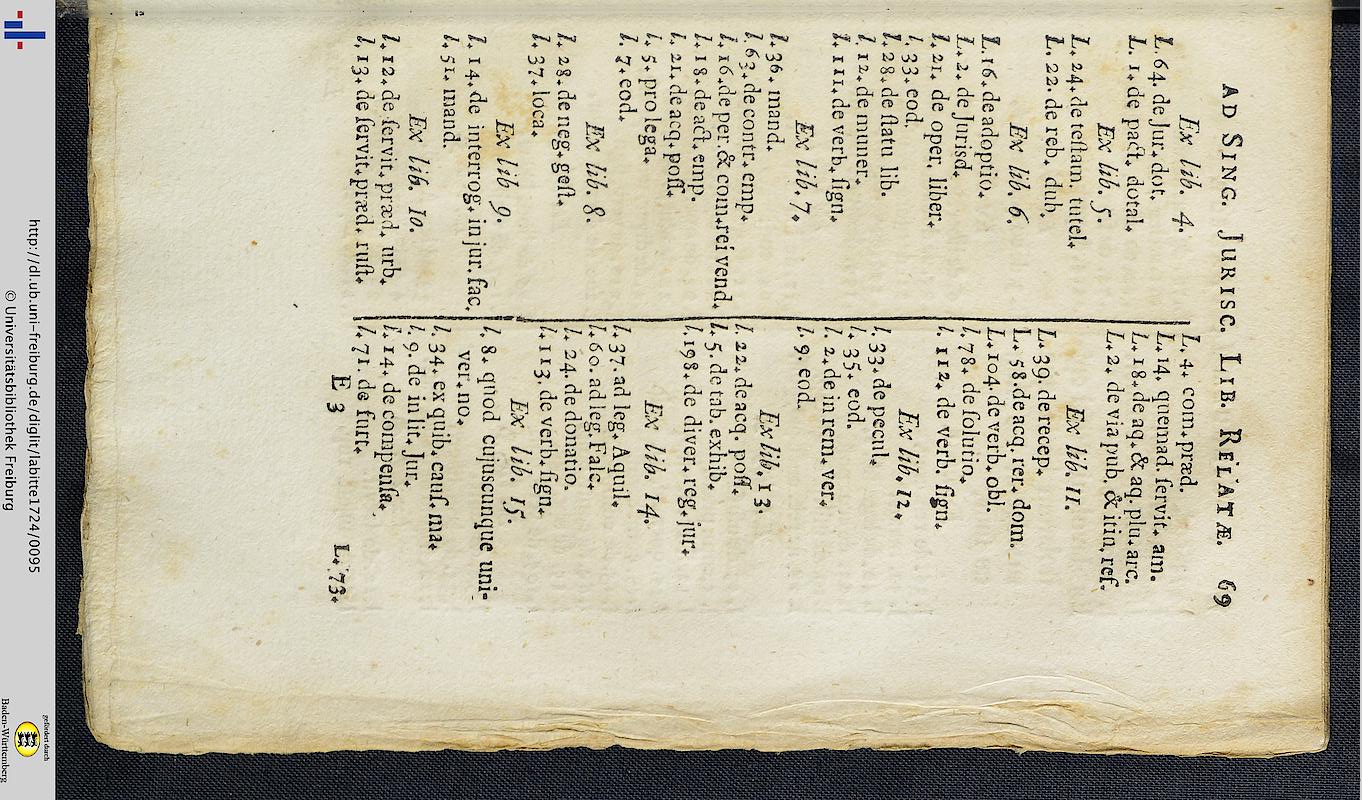 AD SING. JURISC. LIB. RELATÆ. 69
Ex lib. 4.
L. 64. de Jur. dot.
L. 1. de pact. dotal.
Ex lib. 5.
L. 24. de teſtam. tutel.
L. 22. de reb. dub.
Ex lib. 6.
L. 16. de adoptio.
L. 2. de Jurisd.
l. 21. de oper. liber.
l. 33. eod.
l. 28. de ſtatu lib.
l. 12. de muner.
l. 111. de verb. ſign.
Ex lib. 7.
l. 36. mand.
l. 63. de contr. emp.
l. 16. de per. & com. rei vend.
l. 18. de act. emp.
l. 21. de acq. poſſ.
l. 5. pro lega.
l. 7. eod.
Ex lib. 8.
l. 28. de neg. geſt.
l. 37. loca.
Ex lib 9.
l. 14. de interrog. in jur. fac.
l. 51. mand.
Ex lib. 10.
l. 12. de ſervit. præd. urb.
l. 13. de ſervit. præd. ruſt.
L. 4. com. præd.
L. 14. quemad. ſervit. am.
L. 18. de aq. & aq. plu. arc.
L. 2. de via pub. & itin. ref.
Ex lib. 11.
L. 39. de recep.
L. 58. de acq. rer. dom.
L. 104. de verb. obl.
l. 78. de ſolutio.
l. 112. de verb. ſign.
Ex lib. 12.
l. 33. de pecul.
l. 35. eod.
l. 2. de in rem. ver.
l. 9. eod.
Ex lib. 13.
l. 22. de acq. poſſ.
l. 5. de tab. exhib.
l. 198. de diver. reg. jur.
Ex lib. 14.
l. 37. ad leg. Aquil.
l. 60. ad leg. Falc.
l. 24. de donatio.
l. 113. de verb. ſign.
Ex lib. 15.
l. 8. quod cujuscunque uni-
ver. no.
l. 34. ex quib. cauſ. ma.
l. 9. de in lit. Jur.
l. 14. de compenſa.
l. 71. de furt.
E 3
L. 73.
http://dl.ub.uni-freiburg.de/diglit/labitte1724/0095
© Universitätsbibliothek Freiburg
gefördert durch
Baden-Württemberg